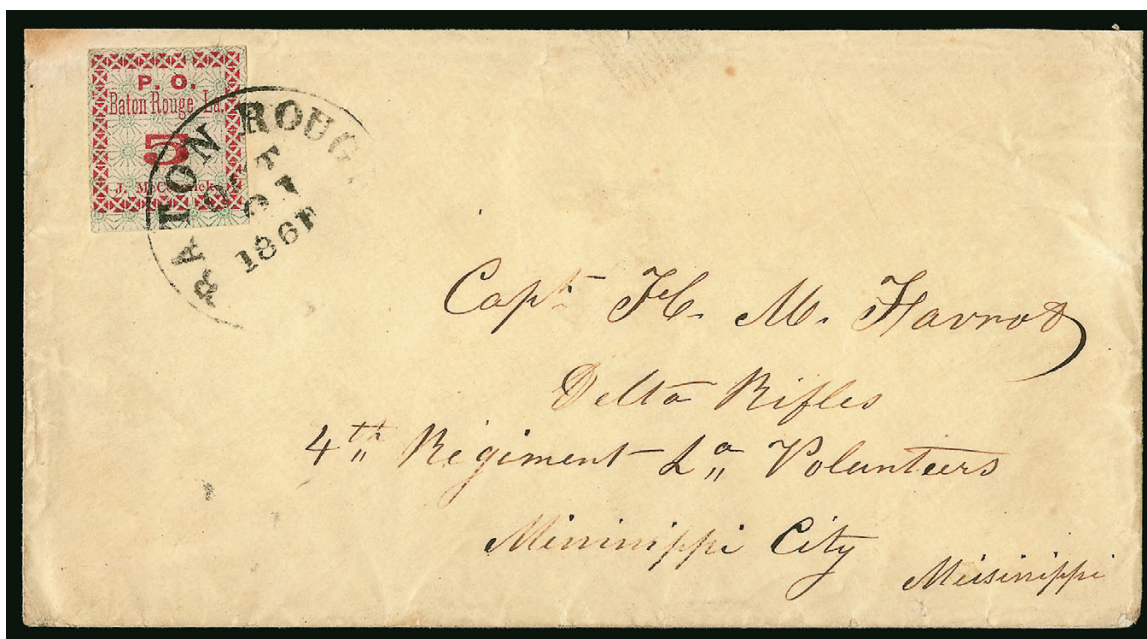 P. O.
Baton Rouge, La.
5
J. McCormick
BATON ROUG
OCT
21
1861
Capt. H. M. Favrot
Delta Rifles
4th Regiment La Volunteers
Mississippi City
Mississippi